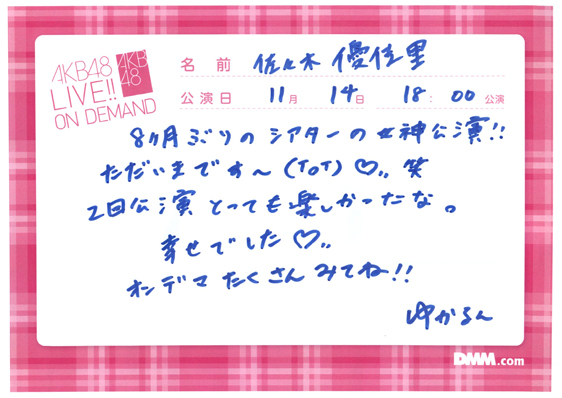 AKB48
LIVE!!
ON DEMAND
AKB
48
名前 佐々木 優佳里
公演日 11月 14日 18:00公演
8ヶ月ぶりのシアターの女神公演!!
ただいまです〜(ToT)♡.. 笑
2回公演 とっても楽しかったな。
幸せでした♡..
オンデマ たくさん みてね!!
ゆかるん
DMM.com